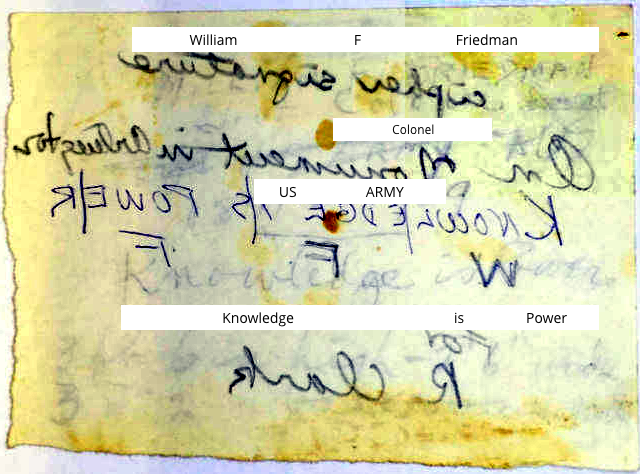 William F Friedman
cipher signature
Colonel
On Monument in Arlington
US ARMY
KNOWL/EDGE I/S POWE/R
W F F
Knowledge is
Knowledge is Power
For
R Clark